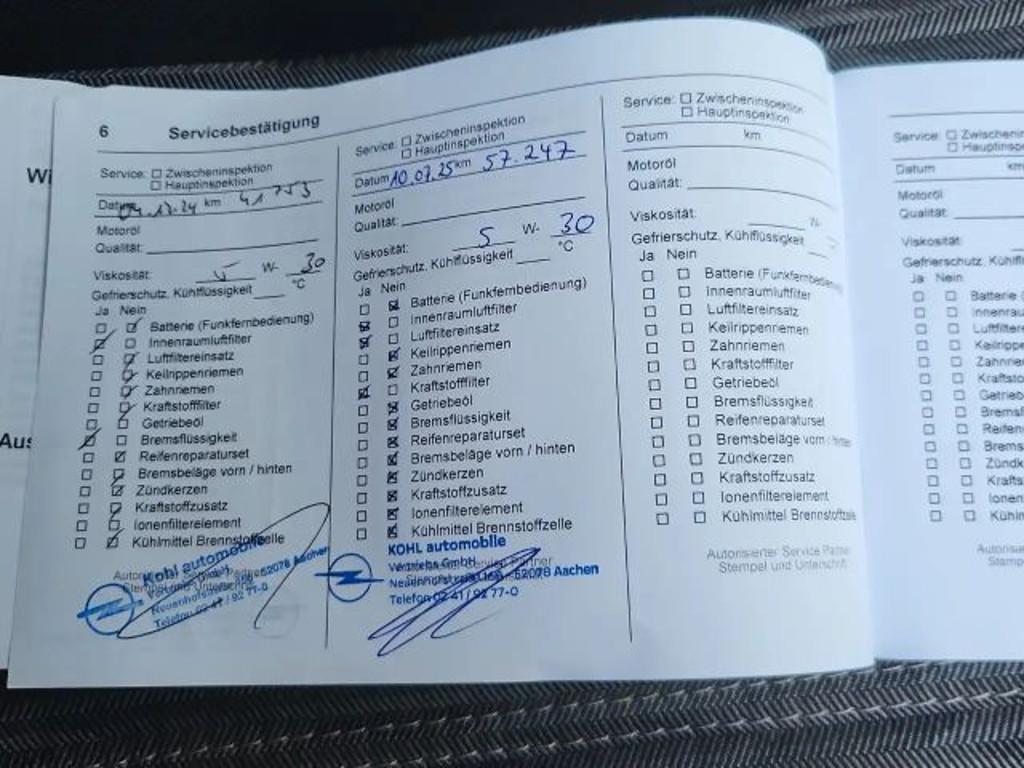 6 Servicebestätigung
Service: Zwischeninspektion
Hauptinspektion
Datum 04.12.24 km 41 753
Motoröl
Qualität:
Viskosität: 5 W- 30
Gefrierschutz, Kühlflüssigkeit °C
Ja Nein
Batterie (Funkfernbedienung)
Innenraumluftfilter
Luftfiltereinsatz
Keilrippenriemen
Zahnriemen
Kraftstofffilter
Getriebeöl
Bremsflüssigkeit
Reifenreparaturset
Bremsbeläge vorn / hinten
Zündkerzen
Kraftstoffzusatz
Ionenfilterelement
Kühlmittel Brennstoffzelle
Kohl automobile
52078 Aachen
Telefon 02 41 / 92 77-0
Service: Zwischeninspektion
Hauptinspektion
Datum 10.07.25 km 57.247
Motoröl
Qualität:
Viskosität: 5 W- 30
Gefrierschutz, Kühlflüssigkeit °C
Ja Nein
Batterie (Funkfernbedienung)
Innenraumluftfilter
Luftfiltereinsatz
Keilrippenriemen
Zahnriemen
Kraftstofffilter
Getriebeöl
Bremsflüssigkeit
Reifenreparaturset
Bremsbeläge vorn / hinten
Zündkerzen
Kraftstoffzusatz
Ionenfilterelement
Kühlmittel Brennstoffzelle
KOHL automobile
Vertriebs GmbH
52078 Aachen
Telefon 02 41 / 92 77-0
Service: Zwischeninspektion
Hauptinspektion
Datum km
Motoröl
Qualität:
Viskosität: W-
Gefrierschutz, Kühlflüssigkeit
Ja Nein
Batterie (Funkfernbedienung
Innenraumluftfilter
Luftfiltereinsatz
Keilrippenriemen
Zahnriemen
Kraftstofffilter
Getriebeöl
Bremsflüssigkeit
Reifenreparaturset
Bremsbeläge vorn / hinten
Zündkerzen
Kraftstoffzusatz
Ionenfilterelement
Kühlmittel Brennstoffzelle
Autorisierter Service Partner
Stempel und Unterschrift
Service:
Datum km
Motoröl
Qualität:
Viskosität:
Ja Nein
Batterie